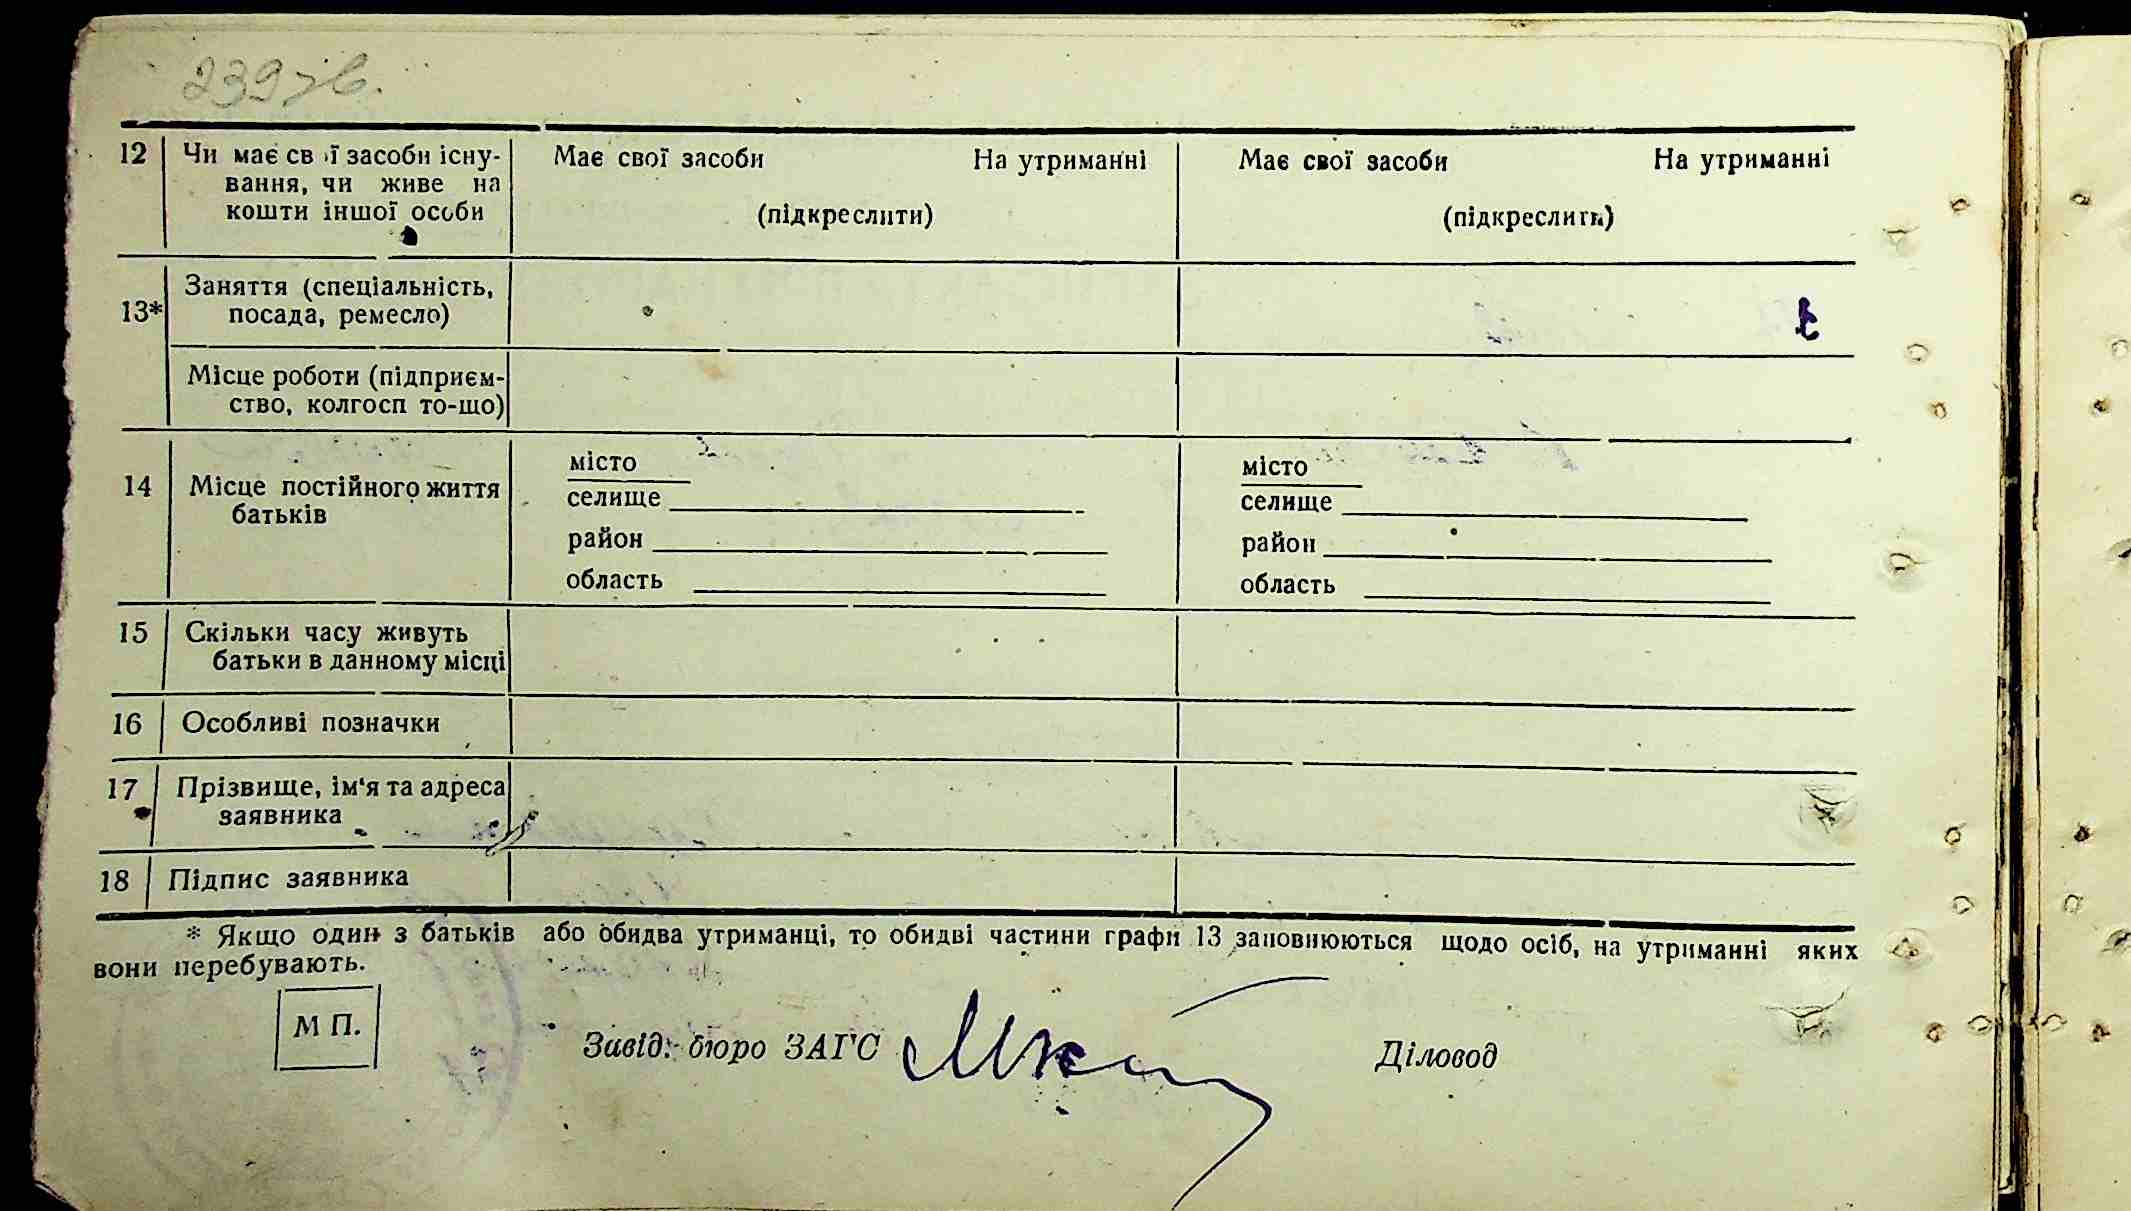 239 зв.
12 Чи має св ї засоби існу- Має свої засоби На утриманні Має свої засоби На утриманні
вання, чи живе на
кошти іншої особи (підкреслити) (підкреслити)
Заняття (спеціальність,
13* посада, ремесло)
Місце роботи (підприєм-
ство, колгосп то-що)
місто місто
14 Місце постійного життя селище селище
батьків
район район
область область
15 Скільки часу живуть
батьки в данному місці
16 Особливі позначки
17 Прізвище, ім'я та адреса
заявника
18 Підпис заявника
* Якщо один з батьків або обидва утриманці, то обидві частини графи 13 заповнюються щодо осіб, на утриманні яких
вони перебувають.
М П.
Завід. бюро ЗАГС Діловод